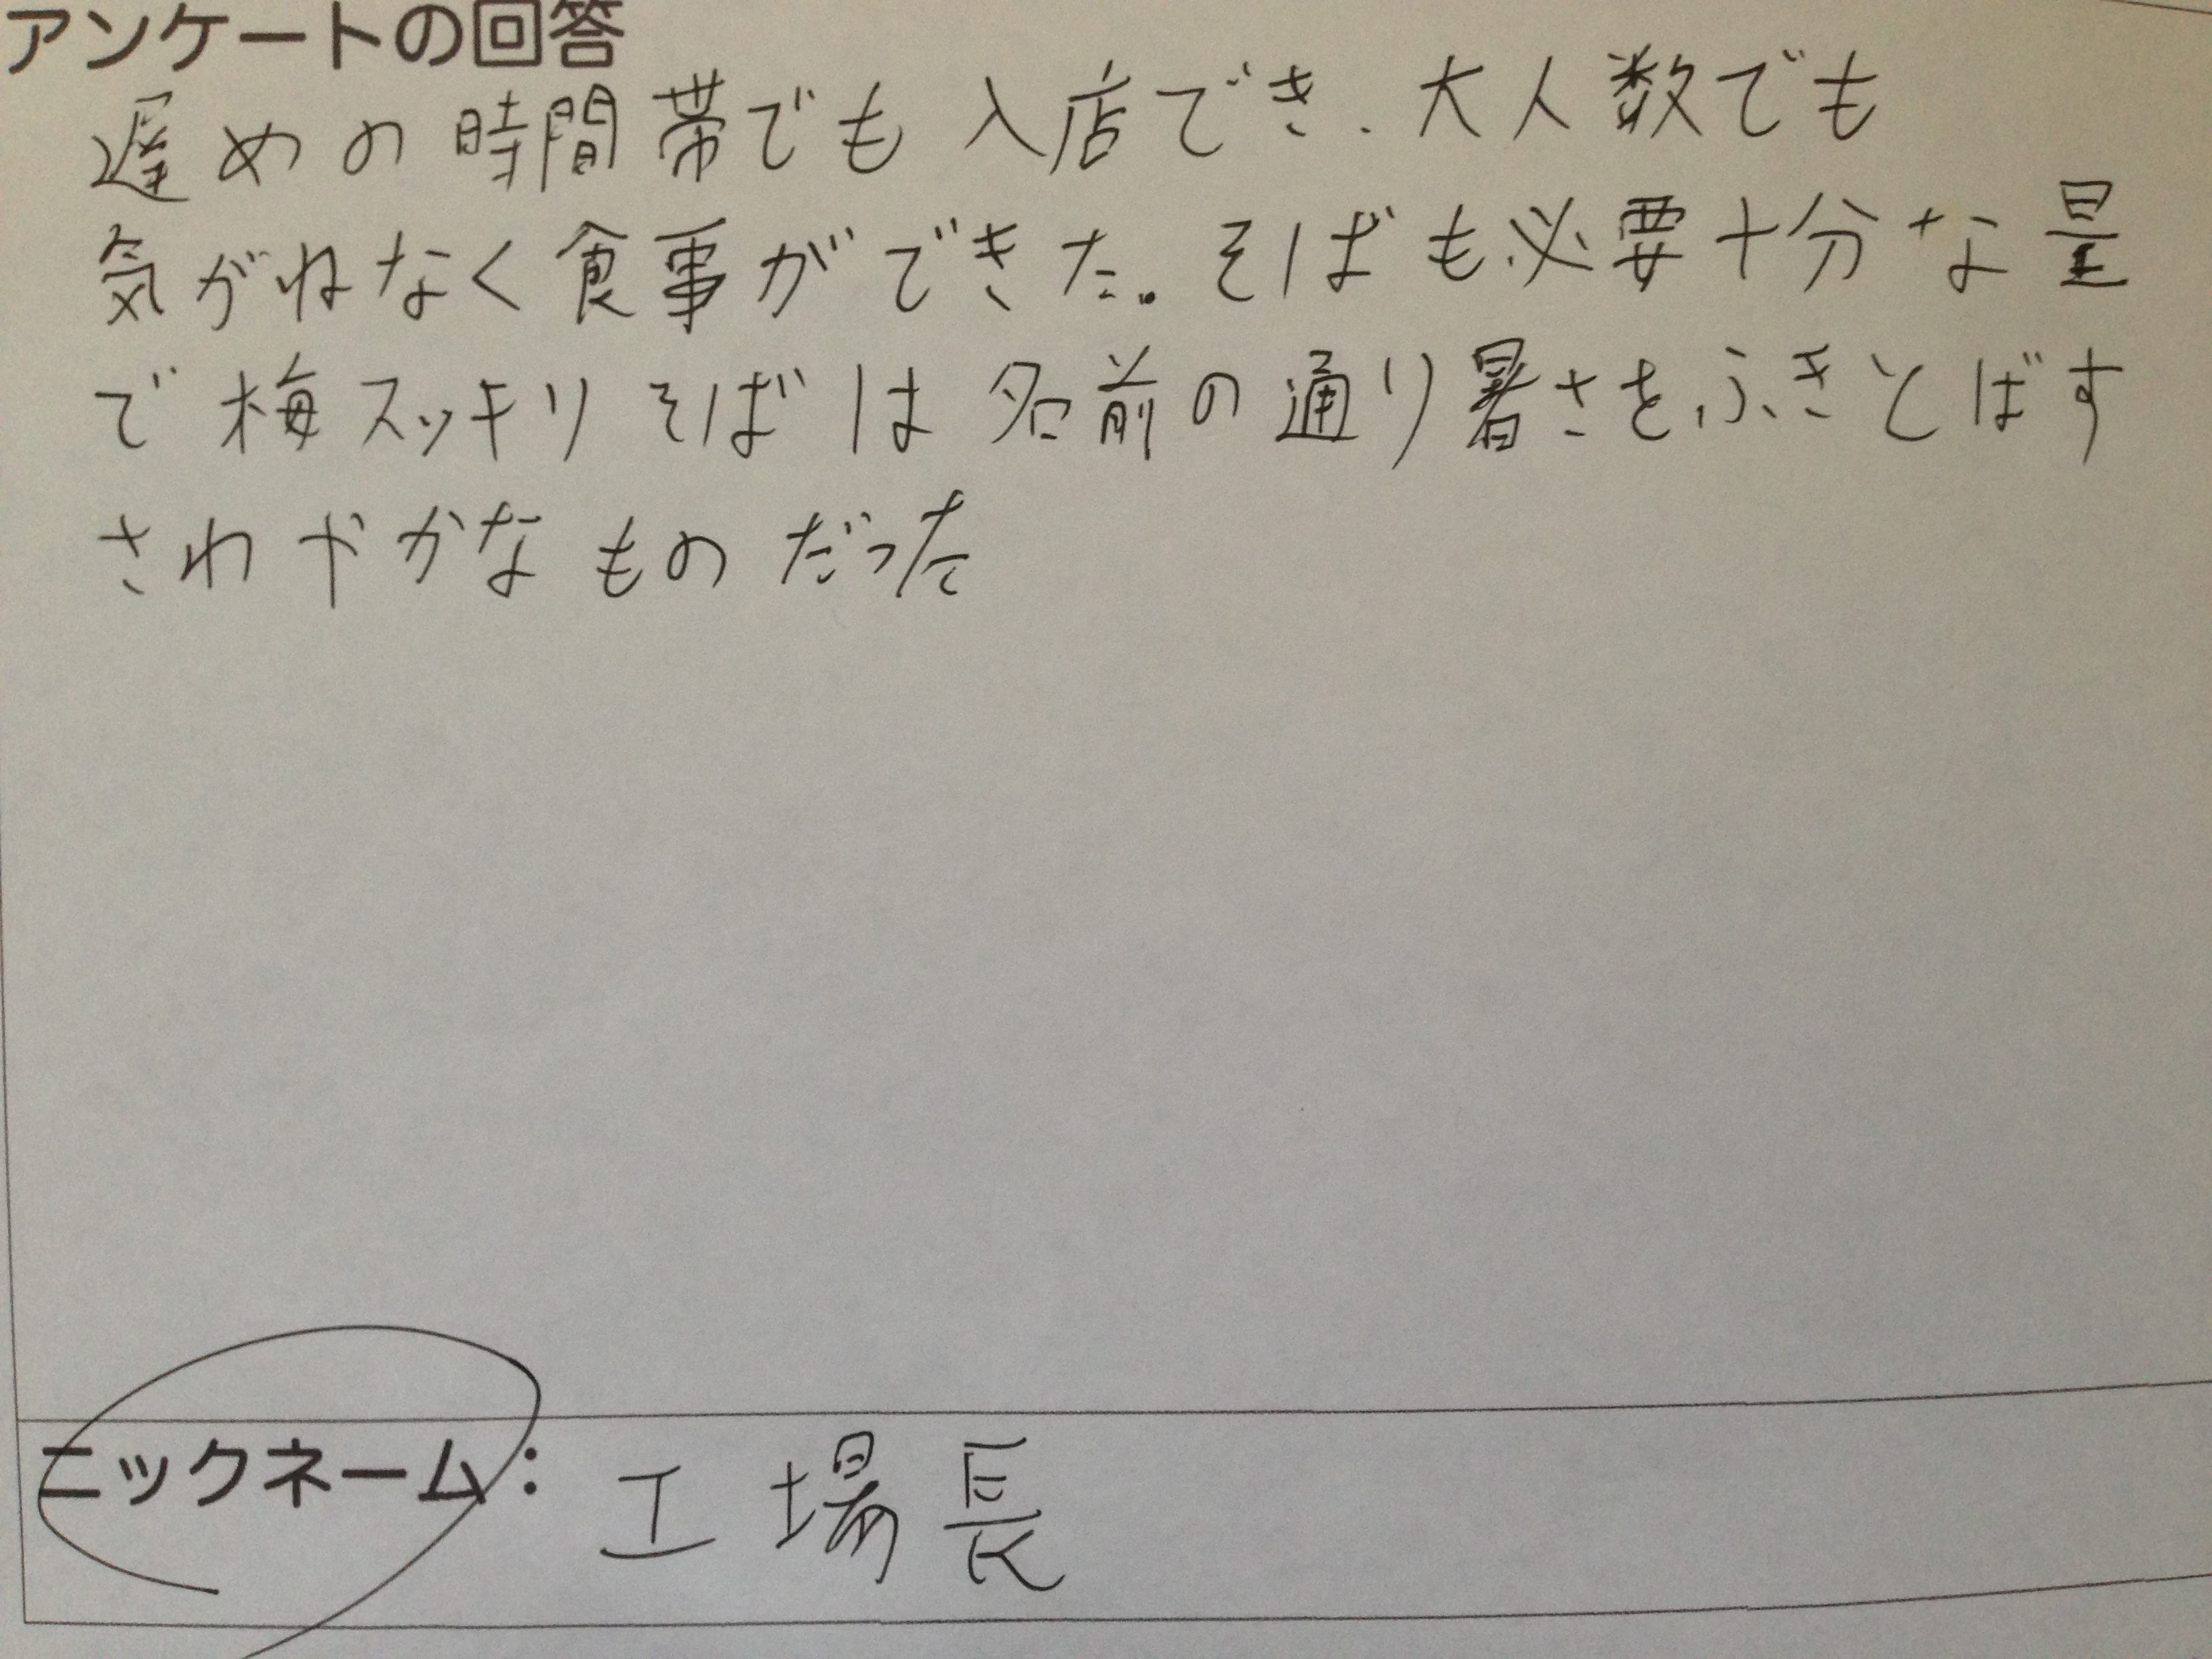 アンケートの回答
遅めの時間帯でも入店でき、大人数でも
気がねなく食事ができた。そばも必要十分な量
で梅スッキリそばは名前の通り暑さをふきとばす
さわやかなものだった
ニックネーム：工場長